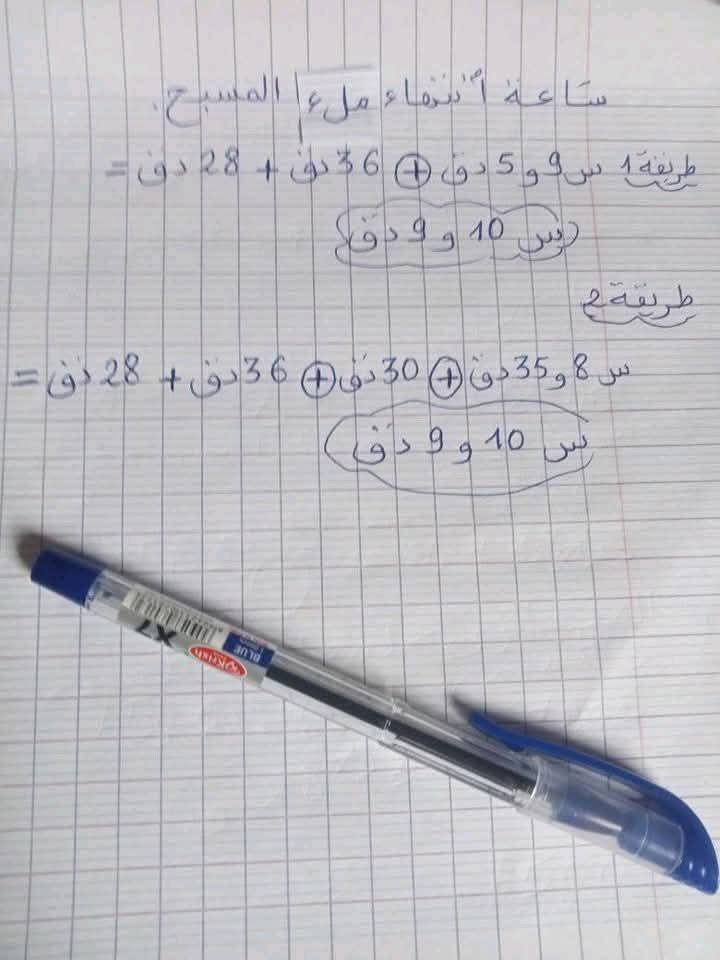 ساعة انتهاء ملء المسبح.
طريقة 1 س 9 و 5 دق + 36 دق + 28 دق =
س 10 و 9 دق
طريقة 2
س 8 و 35 دق + 30 دق + 36 دق + 28 دق =
س 10 و 9 دق
X7
Krish
BLUE